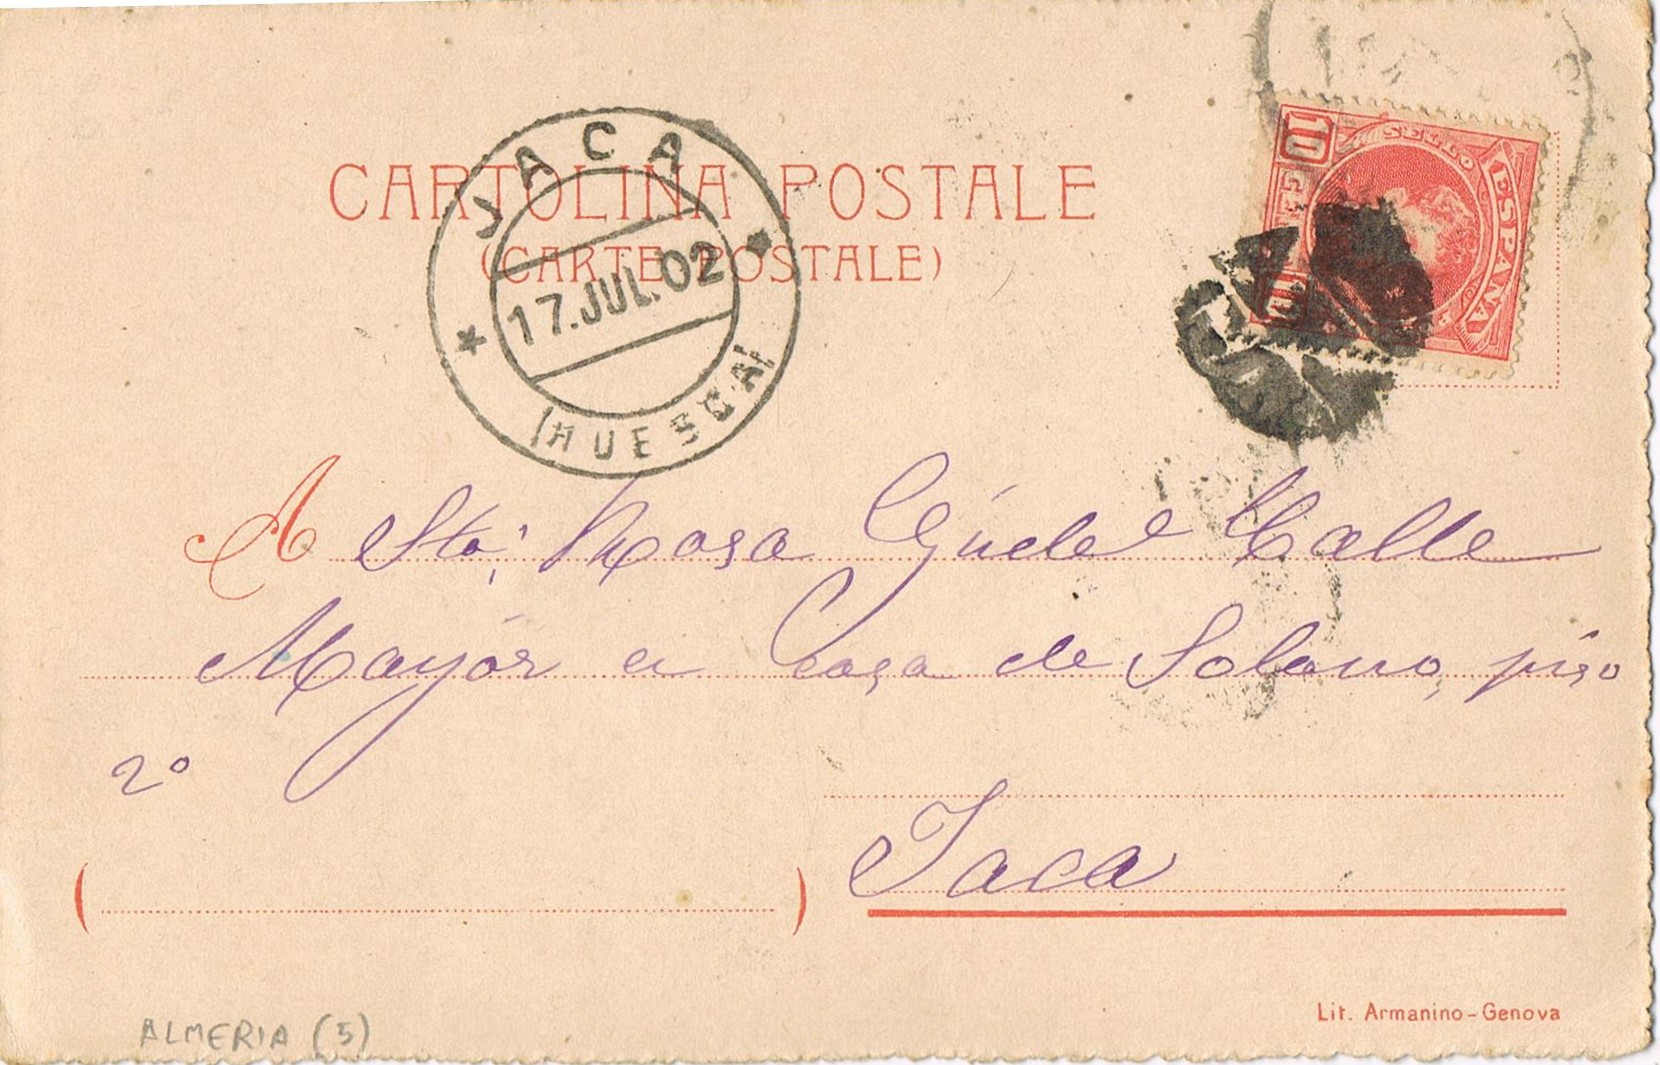 CARTOLINA POSTALE
(CARTE POSTALE)
JACA
17.JUL.02
(HUESCA)
10
SELLO
ESPAÑA
10
A Sta; Rosa Gúdel Calle
Mayór a Casa de Solano, piso
2º
Jaca
( )
Lit. Armanino-Genova
ALMERIA (5)